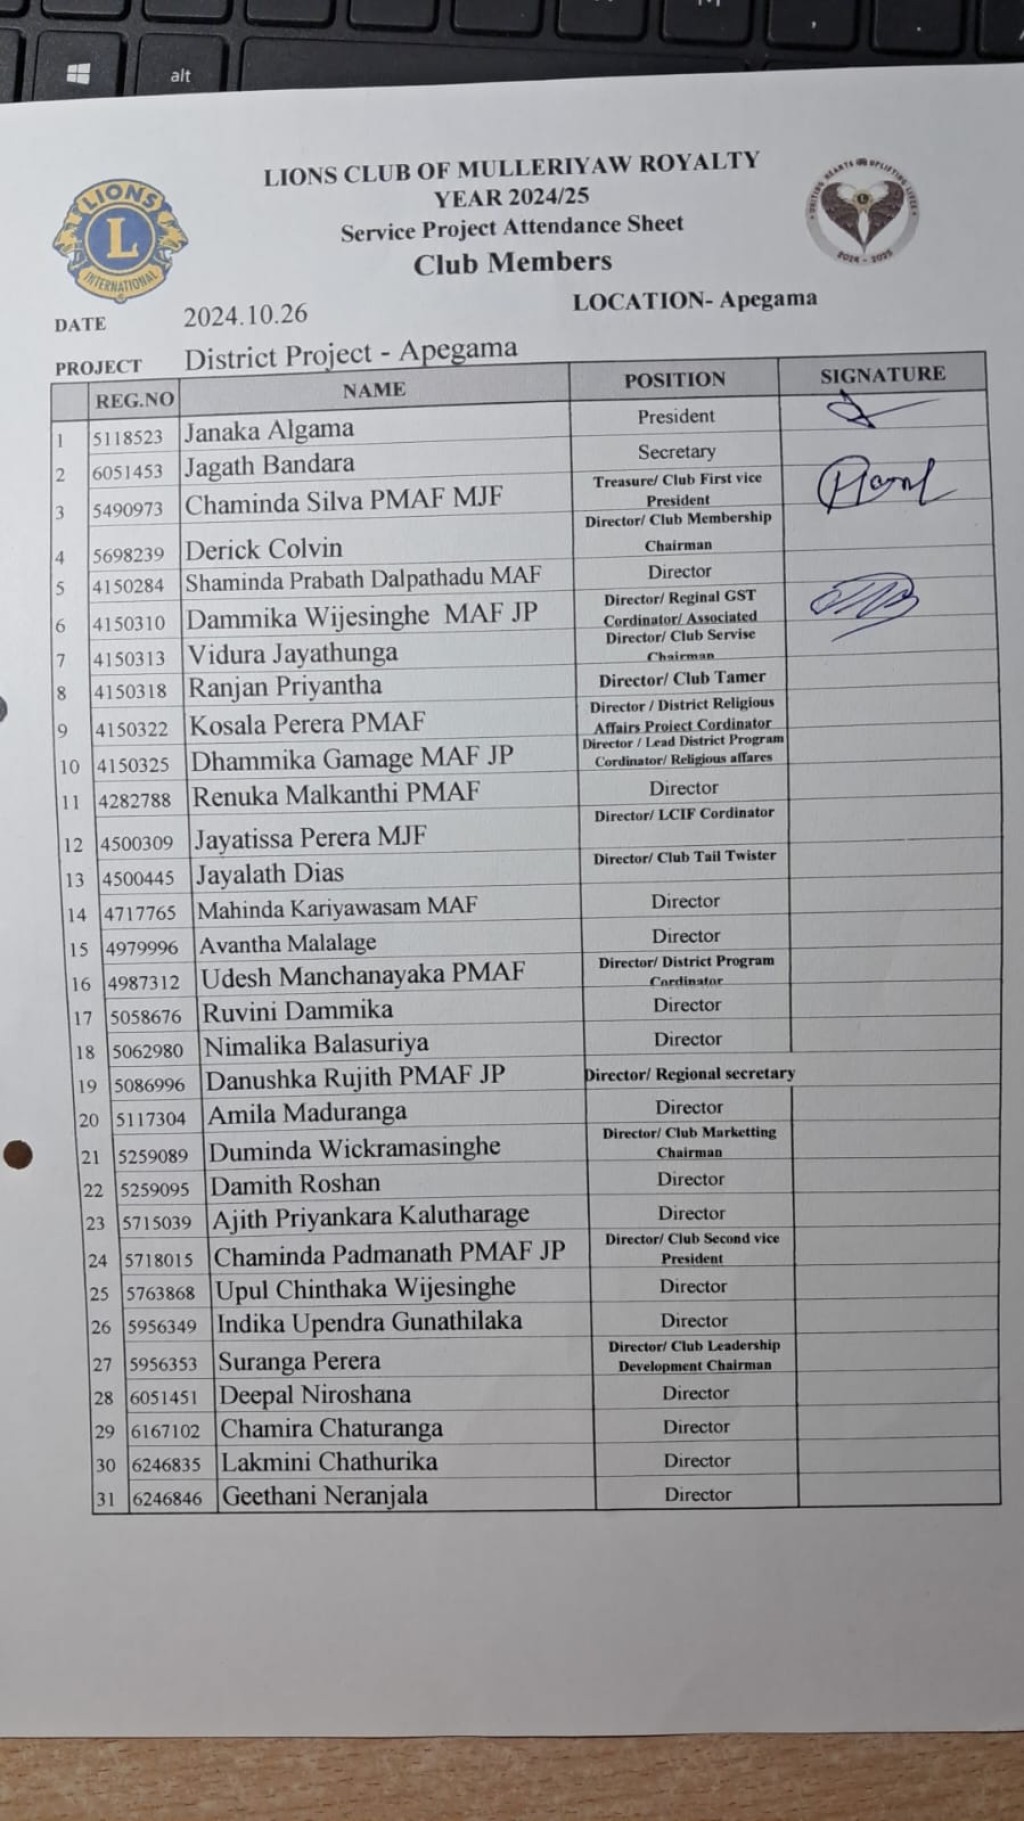 alt
LIONS CLUB OF MULLERIYAW ROYALTY
YEAR 2024/25
Service Project Attendance Sheet
Club Members
LIONS
L
INTERNATIONAL
UNITING HEARTS UPLIFTING LIVES
2024 - 2025
DATE 2024.10.26 LOCATION- Apegama
PROJECT District Project - Apegama
REG.NO NAME POSITION SIGNATURE
1 5118523 Janaka Algama President
2 6051453 Jagath Bandara Secretary
3 5490973 Chaminda Silva PMAF MJF Treasure/ Club First vice
President
4 5698239 Derick Colvin Director/ Club Membership
Chairman
5 4150284 Shaminda Prabath Dalpathadu MAF Director
6 4150310 Dammika Wijesinghe MAF JP Director/ Reginal GST
Cordinator/ Associated
7 4150313 Vidura Jayathunga Director/ Club Servise
Chairman
8 4150318 Ranjan Priyantha Director/ Club Tamer
9 4150322 Kosala Perera PMAF Director / District Religious
Affairs Project Cordinator
10 4150325 Dhammika Gamage MAF JP Director / Lead District Program
Cordinator/ Religious affares
11 4282788 Renuka Malkanthi PMAF Director
12 4500309 Jayatissa Perera MJF Director/ LCIF Cordinator
13 4500445 Jayalath Dias Director/ Club Tail Twister
14 4717765 Mahinda Kariyawasam MAF Director
15 4979996 Avantha Malalage Director
16 4987312 Udesh Manchanayaka PMAF Director/ District Program
Cordinator
17 5058676 Ruvini Dammika Director
18 5062980 Nimalika Balasuriya Director
19 5086996 Danushka Rujith PMAF JP Director/ Regional secretary
20 5117304 Amila Maduranga Director
21 5259089 Duminda Wickramasinghe Director/ Club Marketting
Chairman
22 5259095 Damith Roshan Director
23 5715039 Ajith Priyankara Kalutharage Director
24 5718015 Chaminda Padmanath PMAF JP Director/ Club Second vice
President
25 5763868 Upul Chinthaka Wijesinghe Director
26 5956349 Indika Upendra Gunathilaka Director
27 5956353 Suranga Perera Director/ Club Leadership
Development Chairman
28 6051451 Deepal Niroshana Director
29 6167102 Chamira Chaturanga Director
30 6246835 Lakmini Chathurika Director
31 6246846 Geethani Neranjala Director